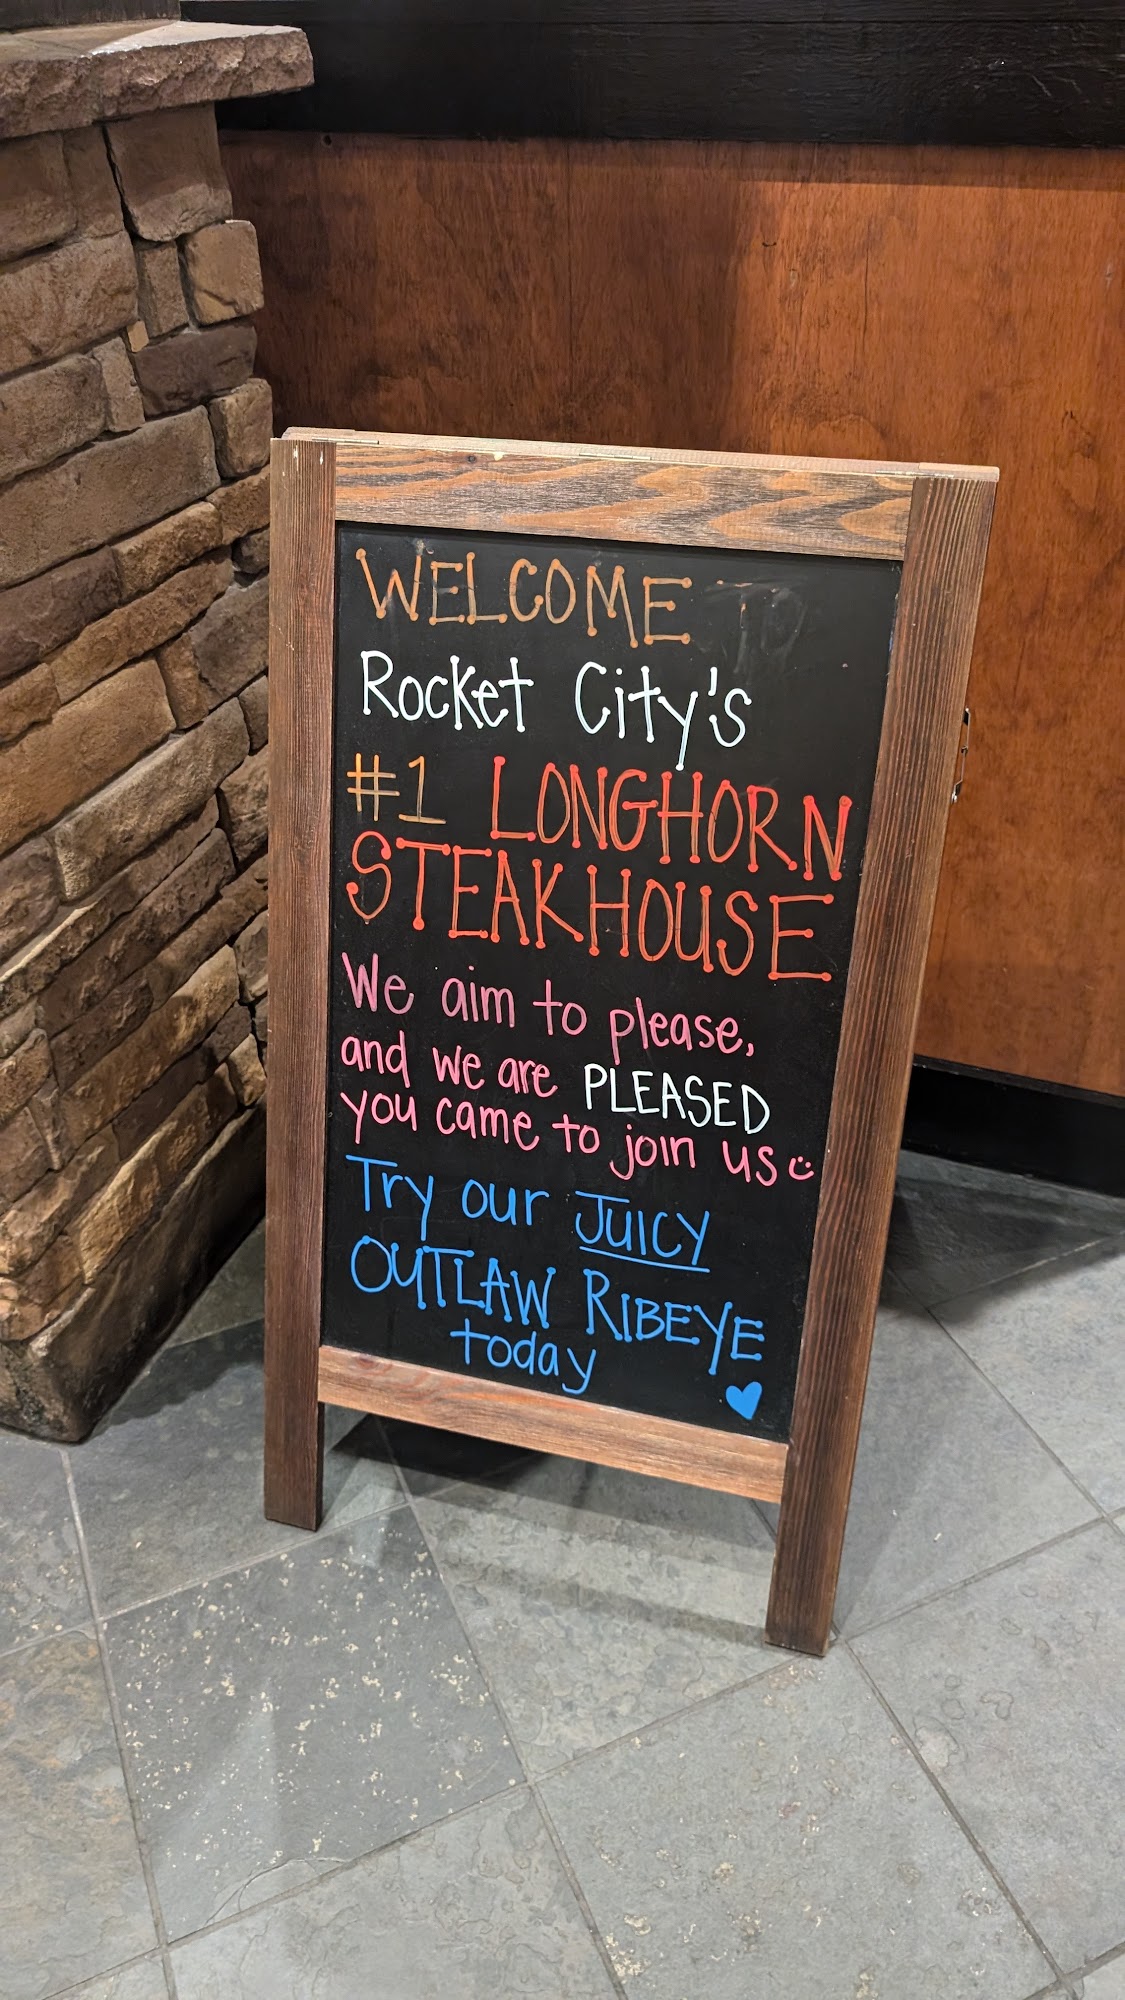 WELCOME TO
Rocket City's
#1 LONGHORN
STEAKHOUSE
We aim to please,
and we are PLEASED
you came to join us
Try our JUICY
OUTLAW RIBEYE
today